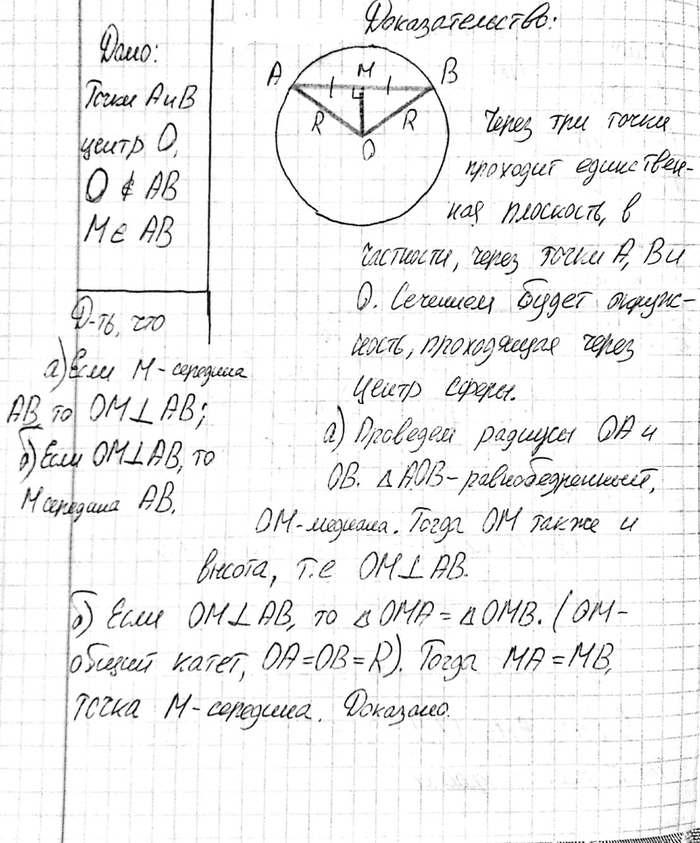 Дано:
Точки A и B
центр O,
O ∉ AB
M ∈ AB
Д-ть, что
а) Если M - середина
AB, то OM ⊥ AB;
б) Если OM ⊥ AB, то
M середина AB.
Доказательство:
A M B
R R
O
Через три точки
проходит единствен-
ная плоскость, в
частности, через точки A, B и
O. Сечением будет окруж-
ность, проходящая через
центр сферы.
а) Проведем радиусы OA и
OB. △AOB - равнобедренный,
OM - медиана. Тогда OM также и
высота, т.е OM ⊥ AB.
б) Если OM ⊥ AB, то △OMA = △OMB. (OM -
общий катет, OA = OB = R). Тогда MA = MB,
точка M - середина. Доказано.